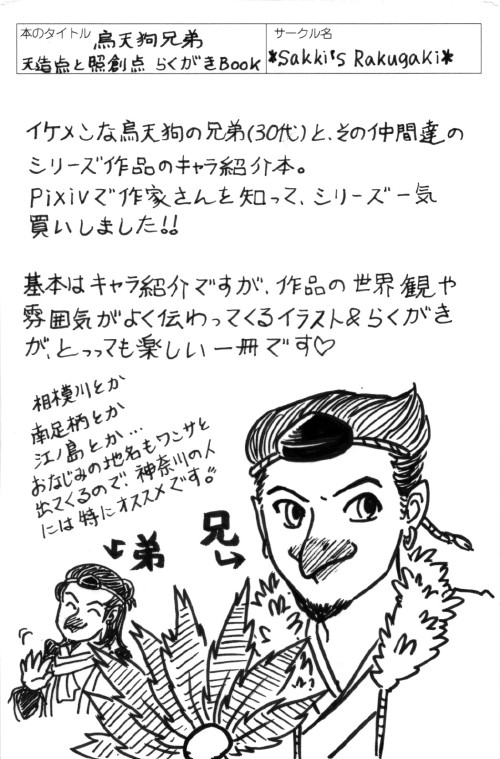 本のタイトル 烏天狗兄弟
天造点と照創点 らくがきBook
サークル名
*Sakki's Rakugaki*
イケメンな烏天狗の兄弟(30代)と、その仲間達の
シリーズ作品のキャラ紹介本。
Pixivで作家さんを知って、シリーズ一気
買いしました!!
基本はキャラ紹介ですが、作品の世界観や
雰囲気がよく伝わってくるイラスト&らくがき
が、とっっても楽しい一冊です♡
相模川とか
南足柄とか
江ノ島とか…
おなじみの地名もワンサと
出てくるので、神奈川の人
には特にオススメです!!
←弟
兄→